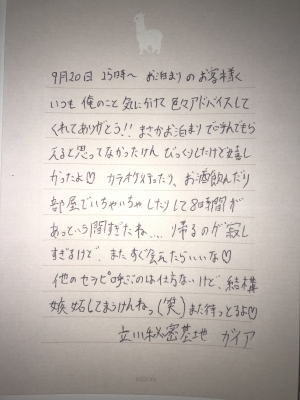 9月20日 25時〜 お泊まりのお客様へ
いつも俺のこと気にかけて色々アドバイスして
くれてありがとう!! まさかお泊まりで呼んでもら
えると思ってなかったけん びっくりしたけど嬉し
かったよ♡ カラオケ行ったり、お酒飲んだり
部屋でいちゃいちゃしたりして8時間が
あっという間すぎたね... 帰るのが寂し
すぎるけど、またすぐ会えたらいいな♡
他のセラピ呼ぶのは仕方ないけど、結構
嫉妬してまうけんねっ(笑) また待っとるよ♡
立川秘密基地 ガイア